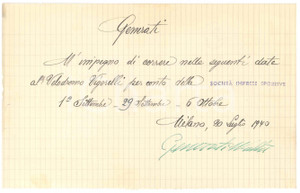 Generati
M'impegno di correre nelle seguenti date
al Velodromo Vigorelli per conto della SOCIETÀ IMPRESE SPORTIVE
1º Settembre - 29 Settembre - 6 Ottobre
Milano, 30 Luglio 1940
Generati Walter